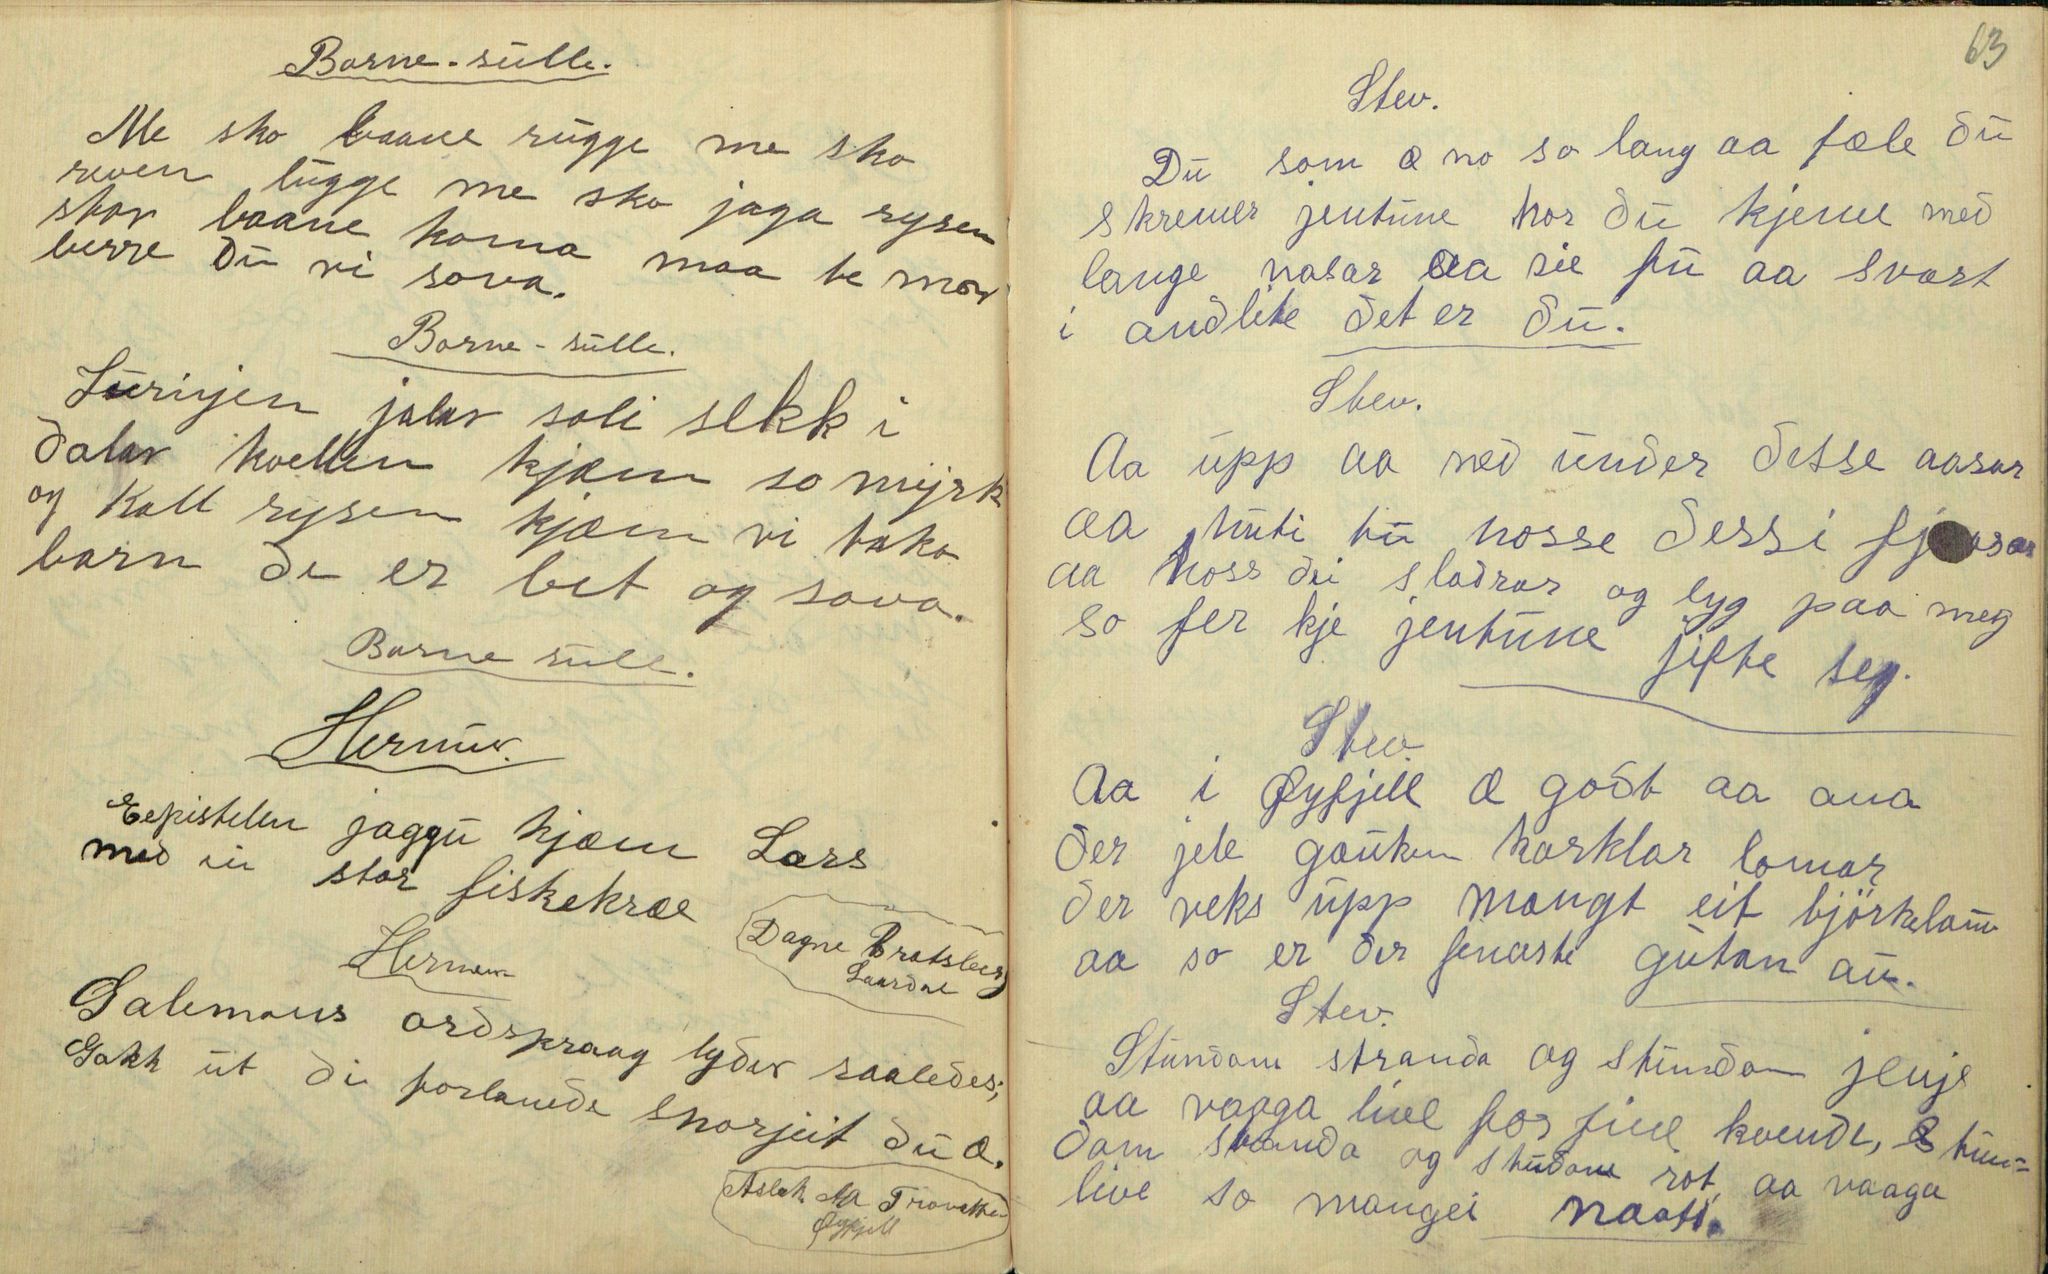 Borne-sulle.
Me sko baane rugge me sko
reven lugge me sko jaga rysen
shov baane koma maa te mor
berre du vi sova.
Borne-sulle.
jalar soli sekk i
dalar kvellen kjæm so myrk
og Kall rysen kjæm vi taka
barn de er bet og sova.
Borne sull.
Hermur.
Eepistelen jaggu kjæm Lars
med ein stor fiskekræe
Dagne Bratsberg
Laardal
Hermur
Salemons ordspraag lyder saaledes;
Gakk ut di forbanede snorjeit du æ.
Aslak
Øyfjell
63
Stev.
Du som æ no so lang aa fæle du
skremer jentune kor du kjeme med
lange nasar aa sie fu aa svart
i andlite det er du.
Stev.
Aa upp aa ned under desse aasar
aa huti tu hosse dessi
aa hoss dei sladrar og lyg paa meg
so fer kje jentune jifte seg.
Stev.
Aa i Øyfjell æ godt aa ana
der jele gauken karklar lomar
der veks upp mangt eit björkelauv
aa so er der fenaste gutan au.
Stev.
Stundom stranda og stundom jenje
aa vaaga live for fiel kvende, Stun=
dom stranda og studom rot aa vaaga
live so mangei naatt.